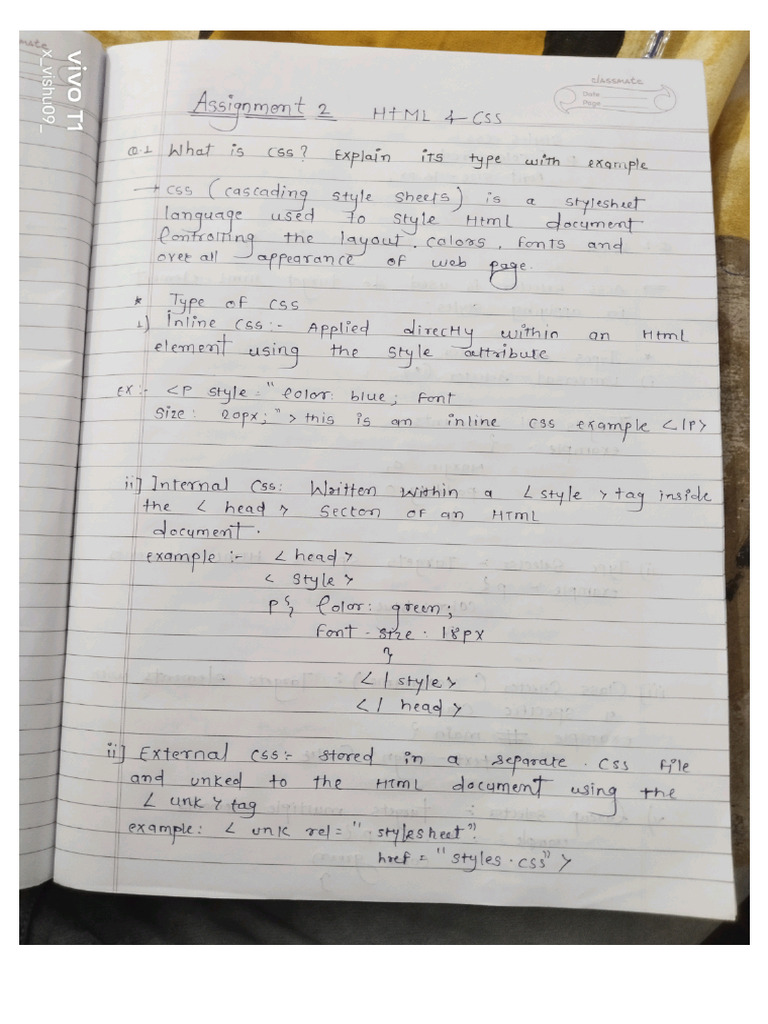 classmate
Date
Page
vivo T1
x_vishu09_
Assignment 2 HtML & CSS
Q.1 What is CSS? Explain its type with example
→ CSS (cascading style sheets) is a stylesheet
language used to style Html document
Controlling the layout, colors, fonts and
over all appearance of web page.
* Type of CSS
1) Inline CSS:- Applied directly within an Html
element using the style attribute
EX:- <P style="Color: blue; Font
Size: 20px;">this is an inline css example </p>
ii] Internal CSS: Written within a <style> tag inside
the <head> secton of an HTML
document.
example:- <head>
<style>
P{ Color: green;
Font-size: 18px
}
</style>
</head>
ii] External CSS:- stored in a separate .CSS File
and unked to the HTML document using the
< unk > tag
example: < unk rel="stylesheet"
href="styles.css">